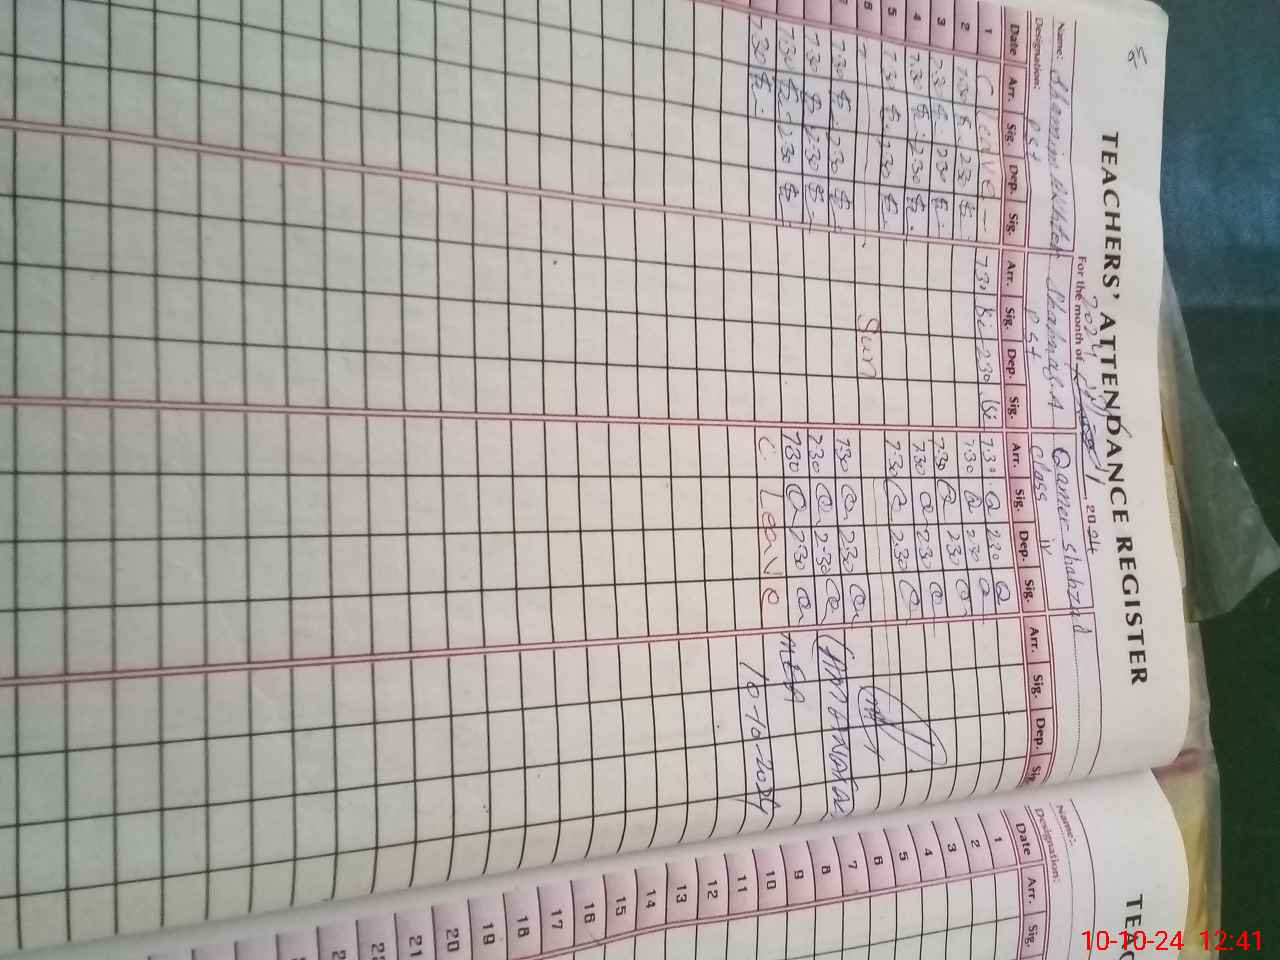 TEACHERS' ATTENDANCE REGISTER
For the month of 2024
Name: Shamim Akhter Shahnaz.A Qamer Shahzad
Designation: Pst Pst Class iv
Date Arr. Sig. Dep. Sig. Arr. Sig. Dep. Sig. Arr. Sig. Dep. Sig. Arr. Sig. Dep. Sig.
1 C Leave - 7:30 230 7:30 230
2 7:30 230 7:30 230
3 7:30 230 7:30 230
4 7:30 230 7:30 230
5 7:30 230 7:30 2:30
6 Sun
7 7:30 230 7:30 230
7:30 2:30 7:30 2:30
7:30 230 7:30 230
7:30 C. Leave
MEA
10-10-2024
TEAC
Name:
Designation:
Date Arr. Sig.
1
2
3
4
5
6
7
8
9
10
11
12
13
14
15
16
17
18
19
20
21
22
10-10-24 12:41